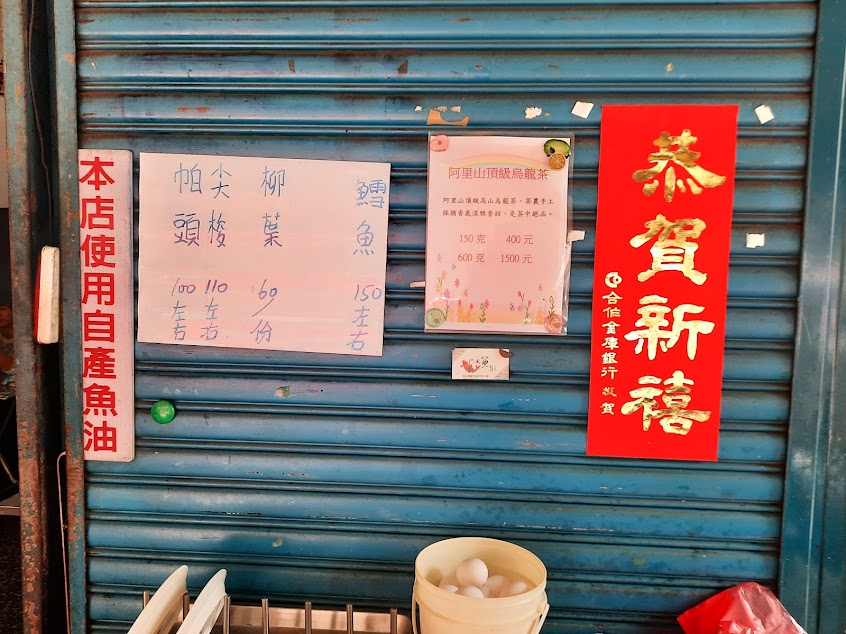 本店使用自產魚油
鱈魚 150左右
柳葉 份
尖梭 110左右
帕頭 100左右
阿里山頂級烏龍茶
阿里山頂級高山烏龍茶、茶農手工
採摘香氣淡雅香甜,是茶中絕品。
150 克 400 元
600 克 1500 元
恭賀新禧
合作金庫銀行 敬賀